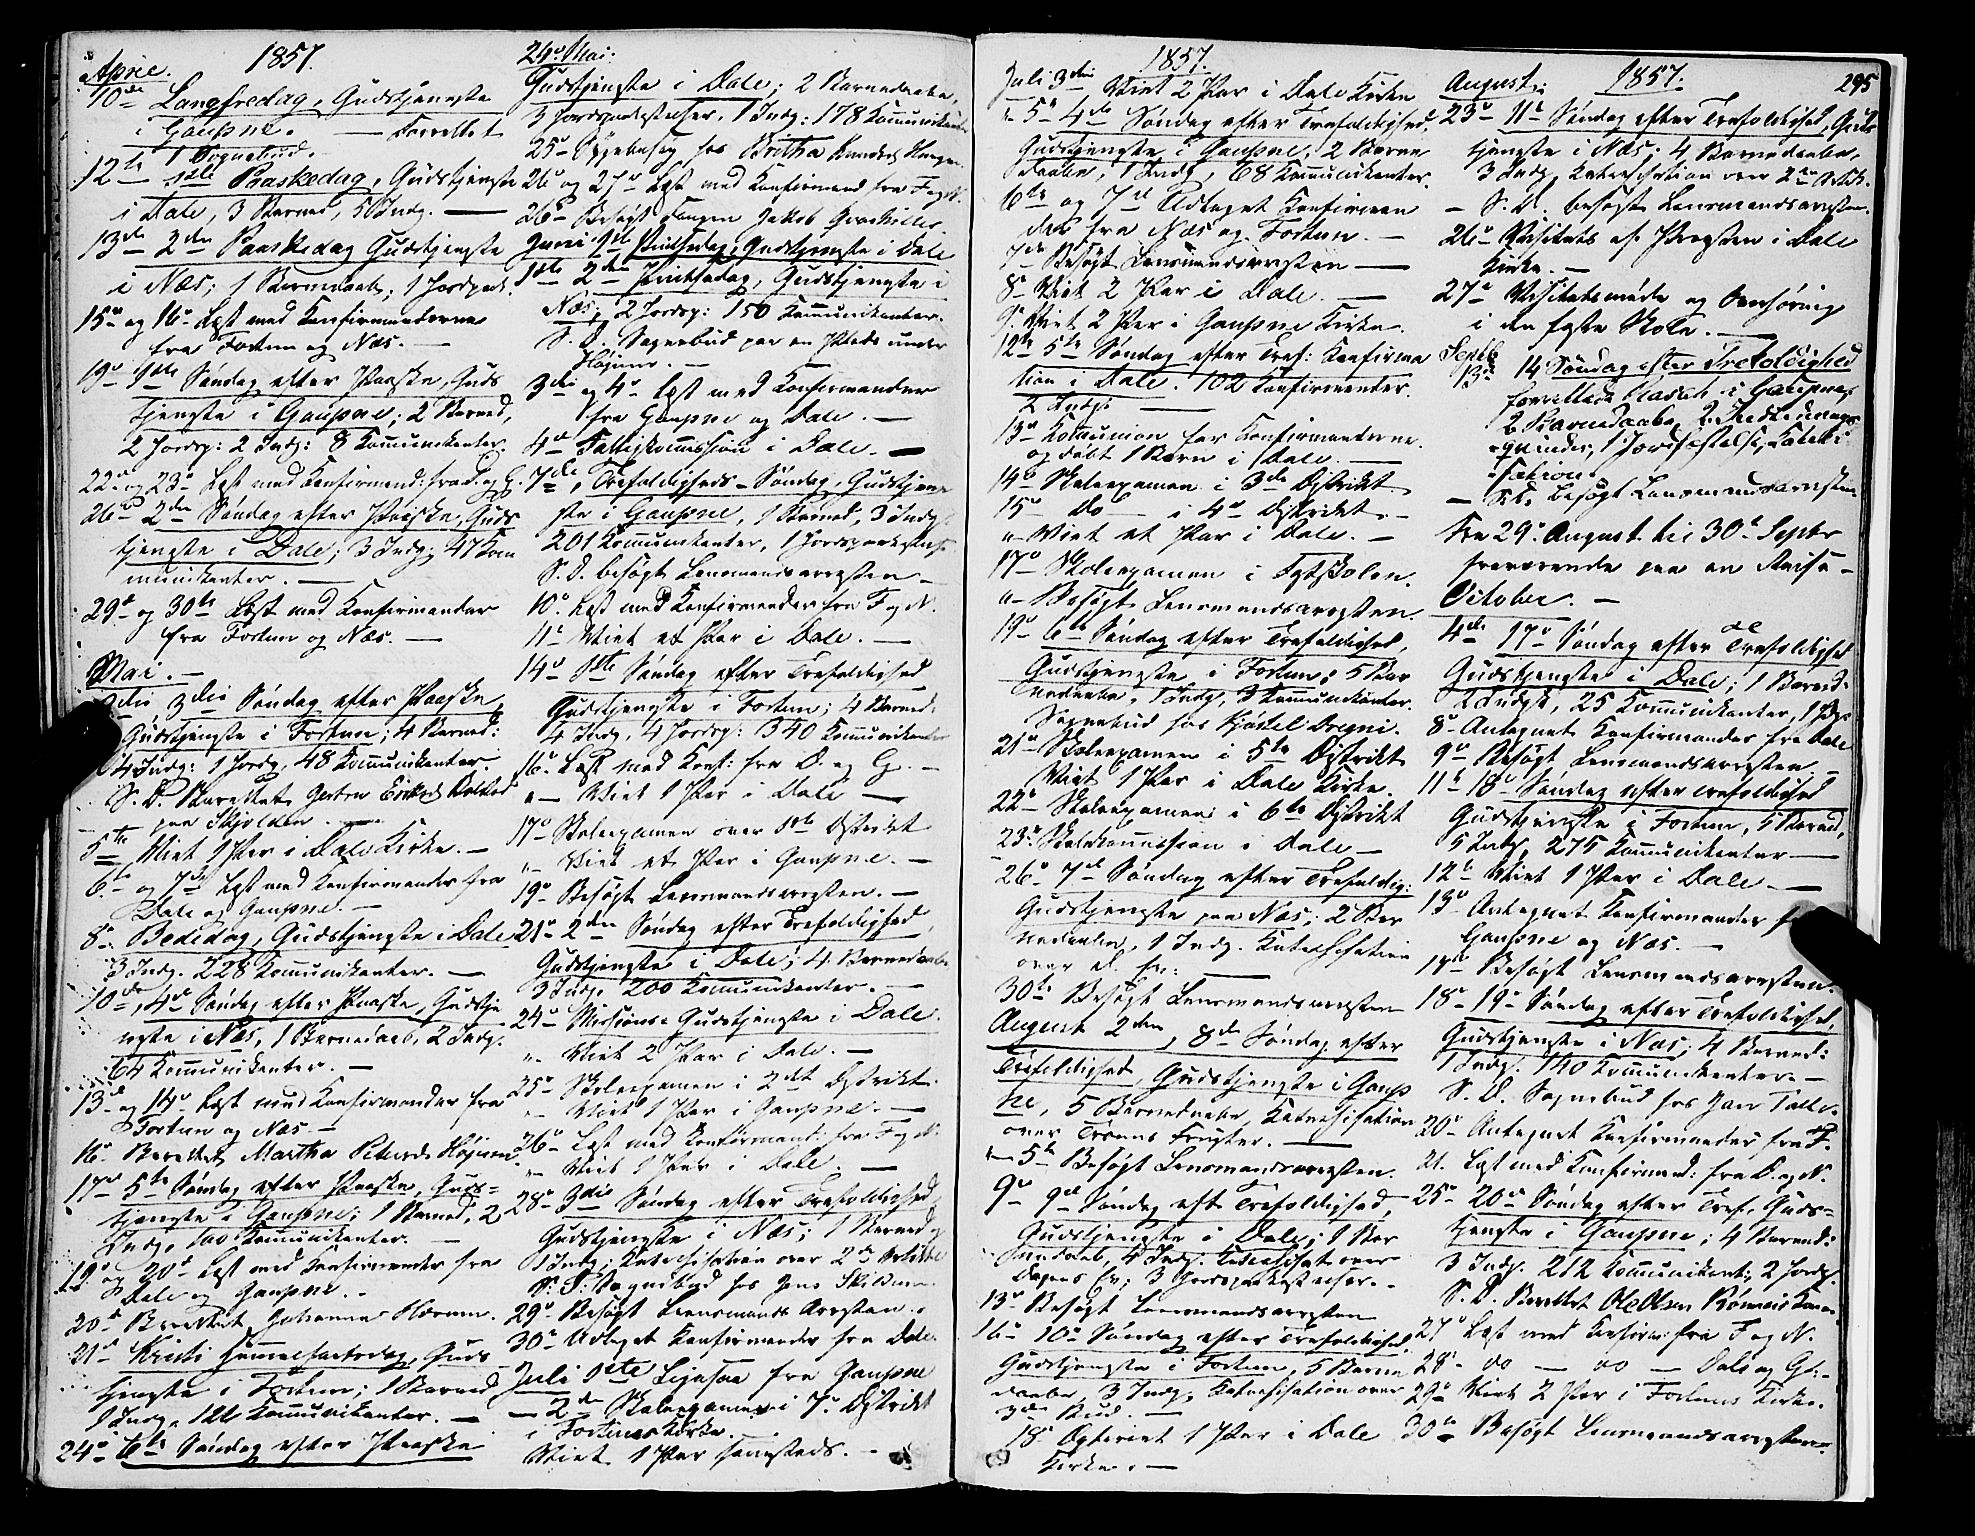 1857.
April.
10de Langfredag, Gudstjeneste
i Gaupne. — Forrettet
1 Sognebud.
12te 1ste Paaskedag, Gudstjeneste
i Dale, 3 Barned, 5 Indg. —
13de 2den Paaskedag Gudstjeneste
i Næs; 1 Barnedaab; 1 Jordpaak.
15de og 16de Læst med Konfirmanderne
fra Fortun og Næs. —
19de 1ste Søndag efter Paaske, Guds
tjeneste i Gaupne; 2 Barned,
2 Jordsp: 2 Indg: 8 Kommunikanter.
22de og 23de Læst med Konfirmand: fra D. og G.
26de 2den Søndag efter Paaske, Guds
tjeneste i Dale; 3 Indg; 47 Kom
munikanter. —
29de og 30te Læst med Konfirmander
fra Fortun og Næs. —
Mai. —
3die Søndag efter Paaske,
Gudstjeneste i Fortun; 4 Barned:
4 Indg: 1 Jordp, 48 Kommunikanter.
S. D. Berettet
paa Skjolden. —
5te Viet 1 Par i Dale Kirke. —
6te og 7de Læst med Konfirmander fra
Dale og Gaupne. —
8de Bededag, Gudstjeneste i Dale
3 Indg. 228 Kommunikanter. —
10de, 4de Søndag efter Paaske, Gudstje
neste i Næs, 1 Barnedaab, 2 Indg.
64 Kommunikanter. —
13de og 14de Læst med Konfirmander fra
Fortun og Næs. —
16de Berettet Martha Petersd.
17de 5te Søndag efter Paaske, Guds=
tjeneste i Gaupne; 1 Barned, 2
Indg. 100 Kommunikanter. —
19de og 20de Læst med Konfirmander fra
Dale og Gaupne. —
20de Berettet Johanne
21de Kristi Himmelfartsdag, Guds
tjeneste i Fortun; 1 Barned
1 Indg. Kommunikanter. —
24de 6te Søndag efter Paaske
24de Mai:
Gudstjeneste i Dale; 2 Barnedaab,
3 Jordpaakastelser, 1 Indg: 178 Kommunikanter
25de Sygebesøg hos Britha
26de og 27de Læst med Konfirmand fra F og N.
26de Besøgt Fangen Jakob
Juni 1ste Pintsedag, Gudstjeneste i Dale
1ste 2den Pintsedag, Gudstjeneste i
Næs, 2 Jordsp: 150 Kommunikanter.
S. D. Sognebud paa en Plads under
Højum. —
3die og 4de Læst med Konfirmander
fra Gaupne og Dale. —
4de Fattigkommission i Dale. —
7de, Trefoldigheds=Søndag, Gudstjene
ste i Gaupne, 1 Barned, 3 Indg.
201 Kommunikanter, 1 Jordspaakastelse
S. D. besøgt Lensmandsarresten —
10de Læst med Konfirmander fra F og N.
11te Viet et Par i Dale. —
14de 1ste Søndag efter Trefoldighed
Gudstjeneste i Fortun; 4 Barned:
4 Indg, 4 Jordsp: 340 Kommunikanter
16de Læst med Konf: fra D. og G. —
" — Viet 1 Par i Dale —
17de Skoleexamen over 1ste Distrikt
" — Viet et Par i Gaupne. —
19de Besøgt Lensmandsarresten. —
21de 2den Søndag efter Trefoldighed,
Gudstjeneste i Dale; 4 Barnedaabe
3 Indg. 200 Kommunikanter. —
24de Missions=Gudstjeneste i Dale.
" — Viet 2 Par i Dale. —
25de Skoleexamen i 2det Distrikt.
" — Viet 1 Par i Gaupne. —
26de Læst med Konfirmand: fra F og N.
" — Viet 1 Par i Dale. —
28de 3die Søndag efter Trefoldighed,
Gudstjeneste i Næs; 1 Barned
1 Indg, Katechisation over 2den Artikel
S. D. Sognebud hos Jens
29de Besøgt Lensmands Arresten.
30te Udtaget Konfirmander fra Dale.
Juli 1ste Ligesaa fra Gaupne
— 2den Skoleexamen i 7de Distrikt
i Fortuns Kirke.
Viet 1 Par sammesteds. —
1857.
Juli 3die Viet 2 Par i Dale Kirke
" 5te 4de Søndag efter Trefoldighed,
Gudstjeneste i Gaupne; 2 Barne
daabe, 1 Indg, 68 Kommunikanter.
6te og 7de Udtaget Konfirman
der fra Næs og Fortun. —
7de Besøgt Lensmandsarresten —
8de Viet 2 Par i Dale. —
9de Viet 2 Par i Gaupne Kirke.
12te 5te Søndag efter Tref: Konfirma
tion i Dale. 102 Konfirmander.
2 Indg: —
13de Kommunion for Konfirmanderne.
og døbt 1 Barn i Dale. —
14de Skoleexamen i 3die Distrikt.
15de Do — i 4de Distrikt. —
" — Viet et Par i Dale. —
17de Skoleexamen i Fastskolen.
" — Besøgt Lensmandsarresten.
19de 6te Søndag efter Trefoldighed,
Gudstjeneste i Fortun; 5 Bar
nedaabe, 1 Indg, 3 Kommunikanter.
Sognebud hos Kjørstel Dregni.
21de Skoleexamen i 5te Distrikt
Viet 1 Par i Dale Kirke.
22de Skoleexamen i 6te Distrikt
23de Skolekommission i Dale —
26de 7de Søndag efter Trefoldig:
Gudstjeneste paa Næs; 2 Bar
nedaabe, 1 Indg. Katechisation
over —
30te Besøgt Lensmandsarresten
August 2den, 8de Søndag efter
Trefoldighed, Gudstjeneste i Gaup
ne, 5 Barnedaabe, Katechisation
over Troens Frugter. —
— 5te Besøgt Lensmandsarresten.
9de 9de Søndag eft Trefoldighed,
Gudstjeneste i Dale; 1 Bar
nedaab, 4 Indg. Katechisat over
Dagens Ev; 3 Jordspaakastelser. —
13de Besøgt Lensmandsarresten
16de 10de Søndag efter Trefoldighed.
Gudstjeneste i Fortun, 5 Barne
daabe, 3 Indg, Katechisation over
3die Bud. —
18de Viet 1 Par i Dale
Kirke. —
August. 1857. 295
23de 11te Søndag efter Trefoldighed, Guds
tjeneste i Næs; 4 Barnedaabe,
3 Indg, Katechisation over 2den Artik.
— S. D. besøgt Lensmandsarresten.
26de Visitats af Provsten i Dale
Kirke. —
27de Visitatsmøde og Overhøring
i den faste Skole. —
Septb
13de 14 Søndag efter Trefoldighed
forrettede i Gaupne,
2 Barnedaabe, 2 Indlednings=
qvinder, 1 Jordfæstelse, Kateki=
sation
— S. D. besøgt Lensmandsarresten
Fra 29de August til 30te Septbr
fraværende paa en Reise —
October. —
4de 17de Søndag efter Trefoldighed
Gudstjeneste i Dale; 1 Barned:
2 Indg, 25 Kommunikanter, 1
8de Antegnet Konfirmander fra Dale
9de Besøgt Lensmandsarresten —
11te 18de Søndag efter Trefoldighed
Gudstjeneste i Fortun, 5 Barned,
5 Indg, 275 Kommunikanter —
12te Viet 1 Par i Dale. —
13de Antegnet Konfirmander
Gaupne og Næs. —
17de Besøgt Lensmandsarresten.
18de 19de Søndag efter Trefoldighed,
Gudstjeneste i Næs; 4 Barned:
1 Indg. 140 Kommunikanter. —
S. D. Sognebud hos Jan
20de Antegnet Konfirmander fra F.
21. Læst med Konfirmand: fra D. og N.
25de 20de Søndag efter Tref. Guds=
tjeneste i Gaupne; 4 Barned:
3 Indg. 212 Kommunikant:, 2 Jordp.
S. D. Berettet Ole Olsen
27de Læst med Konfirm: fra F og N.
28de do — do — Dale og G: —
29de Viet 2 Par i Fortuns Kirke.
30te Besøgt Lensmandsarresten